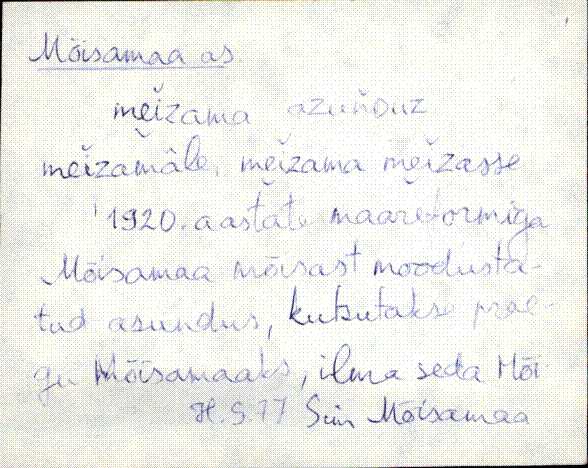 Mõisamaa as.
meĭzama azuńouz
meĭzamàle, meĭzama meĭzasse
'1920. aastate maareformiga
Mõisamaa mõisast moodusta-
tud asundus, kutsutakse prae-
gu Mõisamaaks, ilma seda Mõi
H.S.77 Sim Mõisamaa